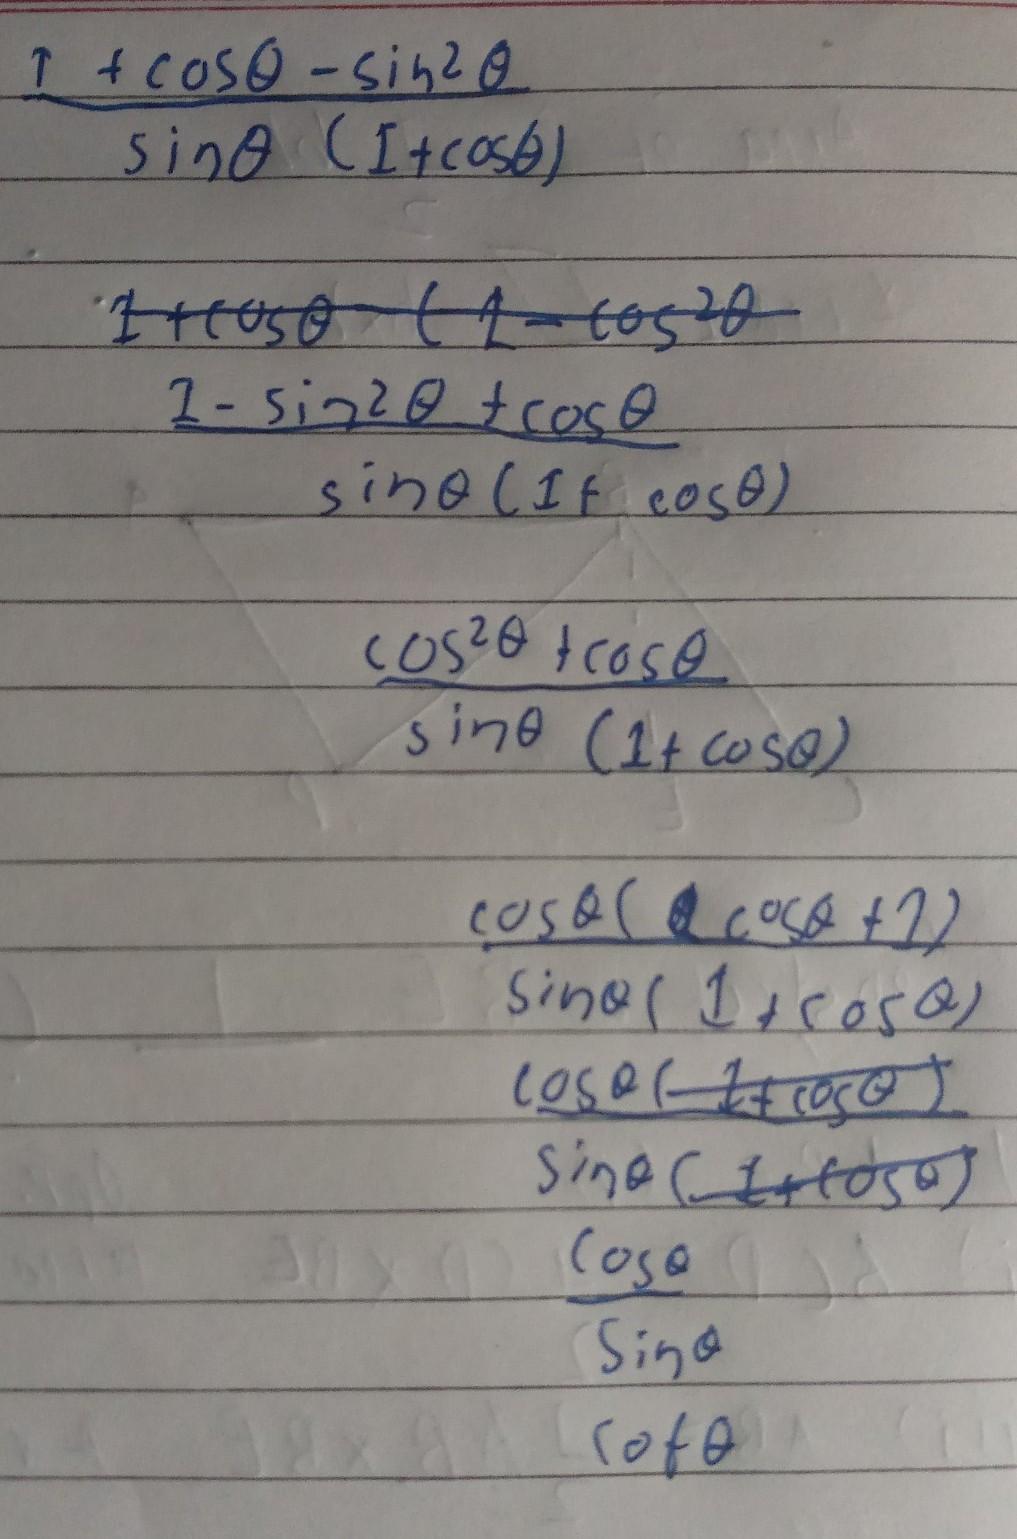 1 + cosθ - sin2θ
sinθ (1+cosθ)
1 + cosθ - (1 - cos²θ
1 - sin2θ + cosθ
sinθ (1+ cosθ)
cos²θ + cosθ
sinθ (1+ cosθ)
cosθ ( cosθ + 1)
sinθ ( 1 + cosθ)
cosθ ( 1+ cosθ )
sinθ ( 1+ cosθ)
cosθ
sinθ
cotθ